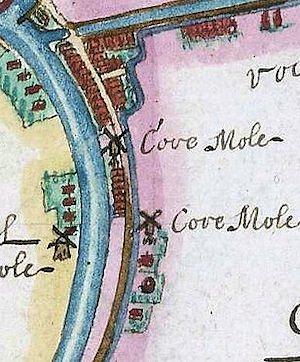 vou
Cove Mole
Cove Mole
ole